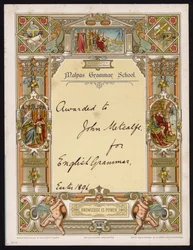 Malpas Grammar School.
Awarded to
John Metcalfe,
for
English Grammar,
KNOWLEDGE IS POWER